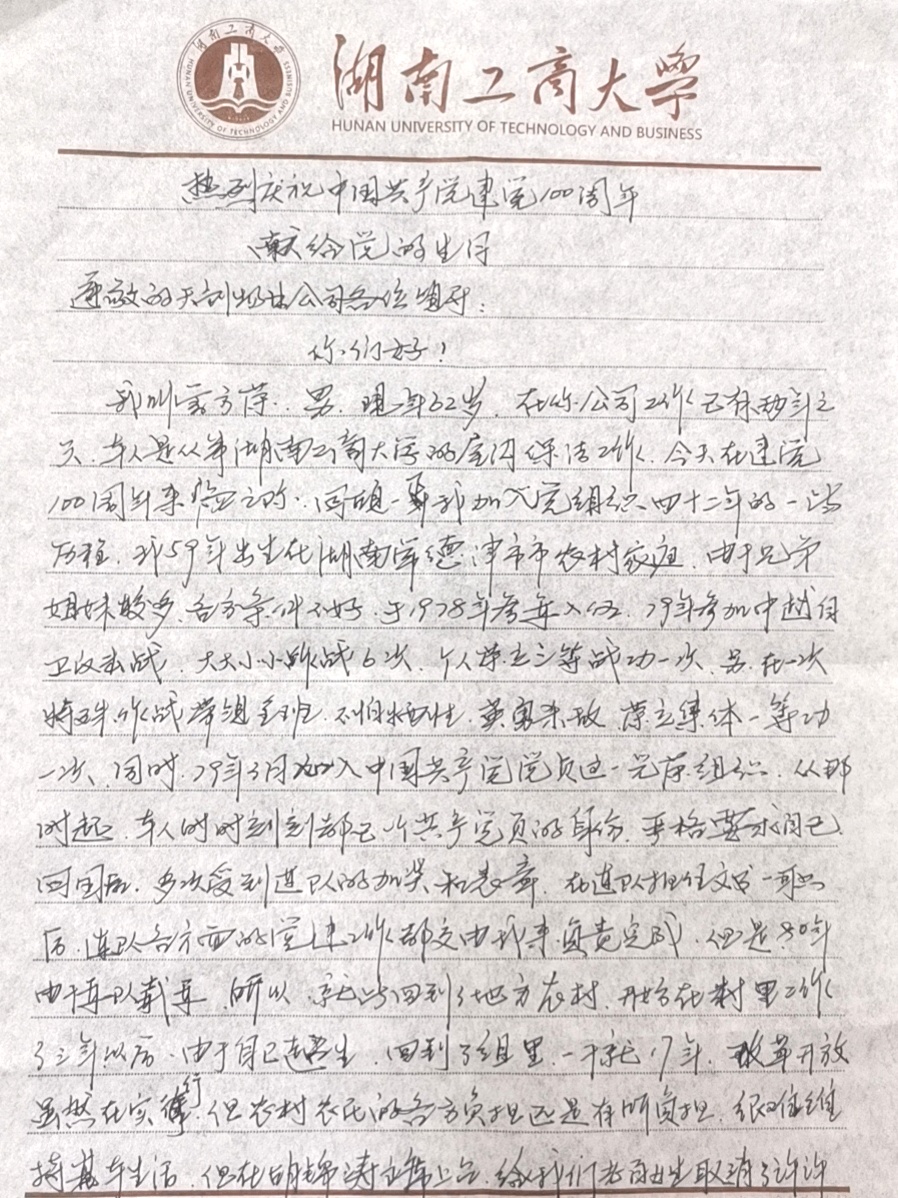 湖南工商大学
HUNAN UNIVERSITY OF TECHNOLOGY AND BUSINESS
湖南工商大学
HUNAN UNIVERSITY OF TECHNOLOGY AND BUSINESS
热烈庆祝中国共产党建党100周年
献给党的生日
尊敬的天创物业公司各位领导:
你们好!
我叫方,男,现年62岁,在你公司工作已有两年之
久,本人是从事湖南工商大学的属内保洁工作,今天在建党
100周年来临之际,回顾一下我加入党组织四十二年的一些
历程,我59年出生在湖南常德津市市农村家庭,由于兄弟
姐妹较多,各方条件不好,于1978年参军入伍,79年参加中越自
卫反击战,大大小小作战6次,个人荣立三等战功一次,另,在一次
特殊作战带领全班,不怕牺牲,英勇杀敌,荣立集体一等功
一次,同时,79年3月加入中国共产党党员这一光荣组织,从那
时起,本人时时刻刻都已一个共产党员的身份,严格要求自己,
回国后,多次受到连队的加奖和表章,在连队担任文书一职
后,连队各方面的党建工作都交由我来负责完成,但是80年
由于军队裁军,所以,就此回到了地方农村,开始在村里工作
了三年以后,由于自己超生,回到了组里,一干就17年,改革开放
虽然在实行,但农村农民的各方负担还是有所负担,很难维
持基本生活,但在胡锦涛主席上台,给我们老百姓取消了许许